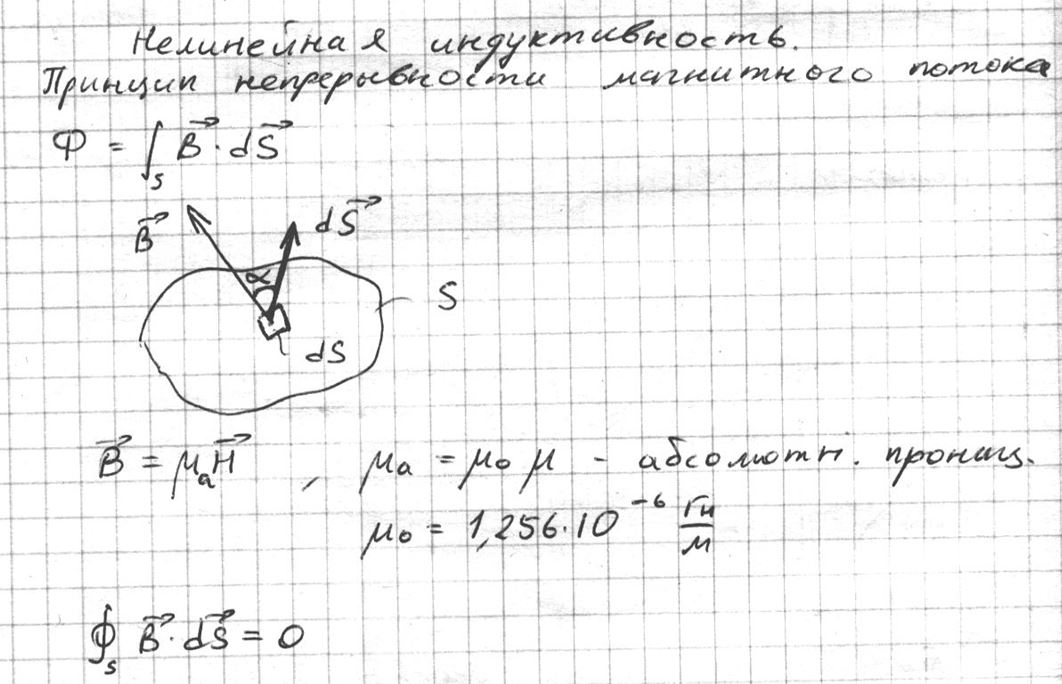 Нелинейная индуктивность.
Принцип непрерывности магнитного потока
Φ = ∫_S B⃗ · dS⃗
B⃗
dS⃗
α
S
dS
B⃗ = μ_a H⃗ , μ_a = μ_0 μ - абсолютн. прониц.
μ_0 = 1,256·10^{-6} Гн/м
∮_S B⃗ · dS⃗ = 0